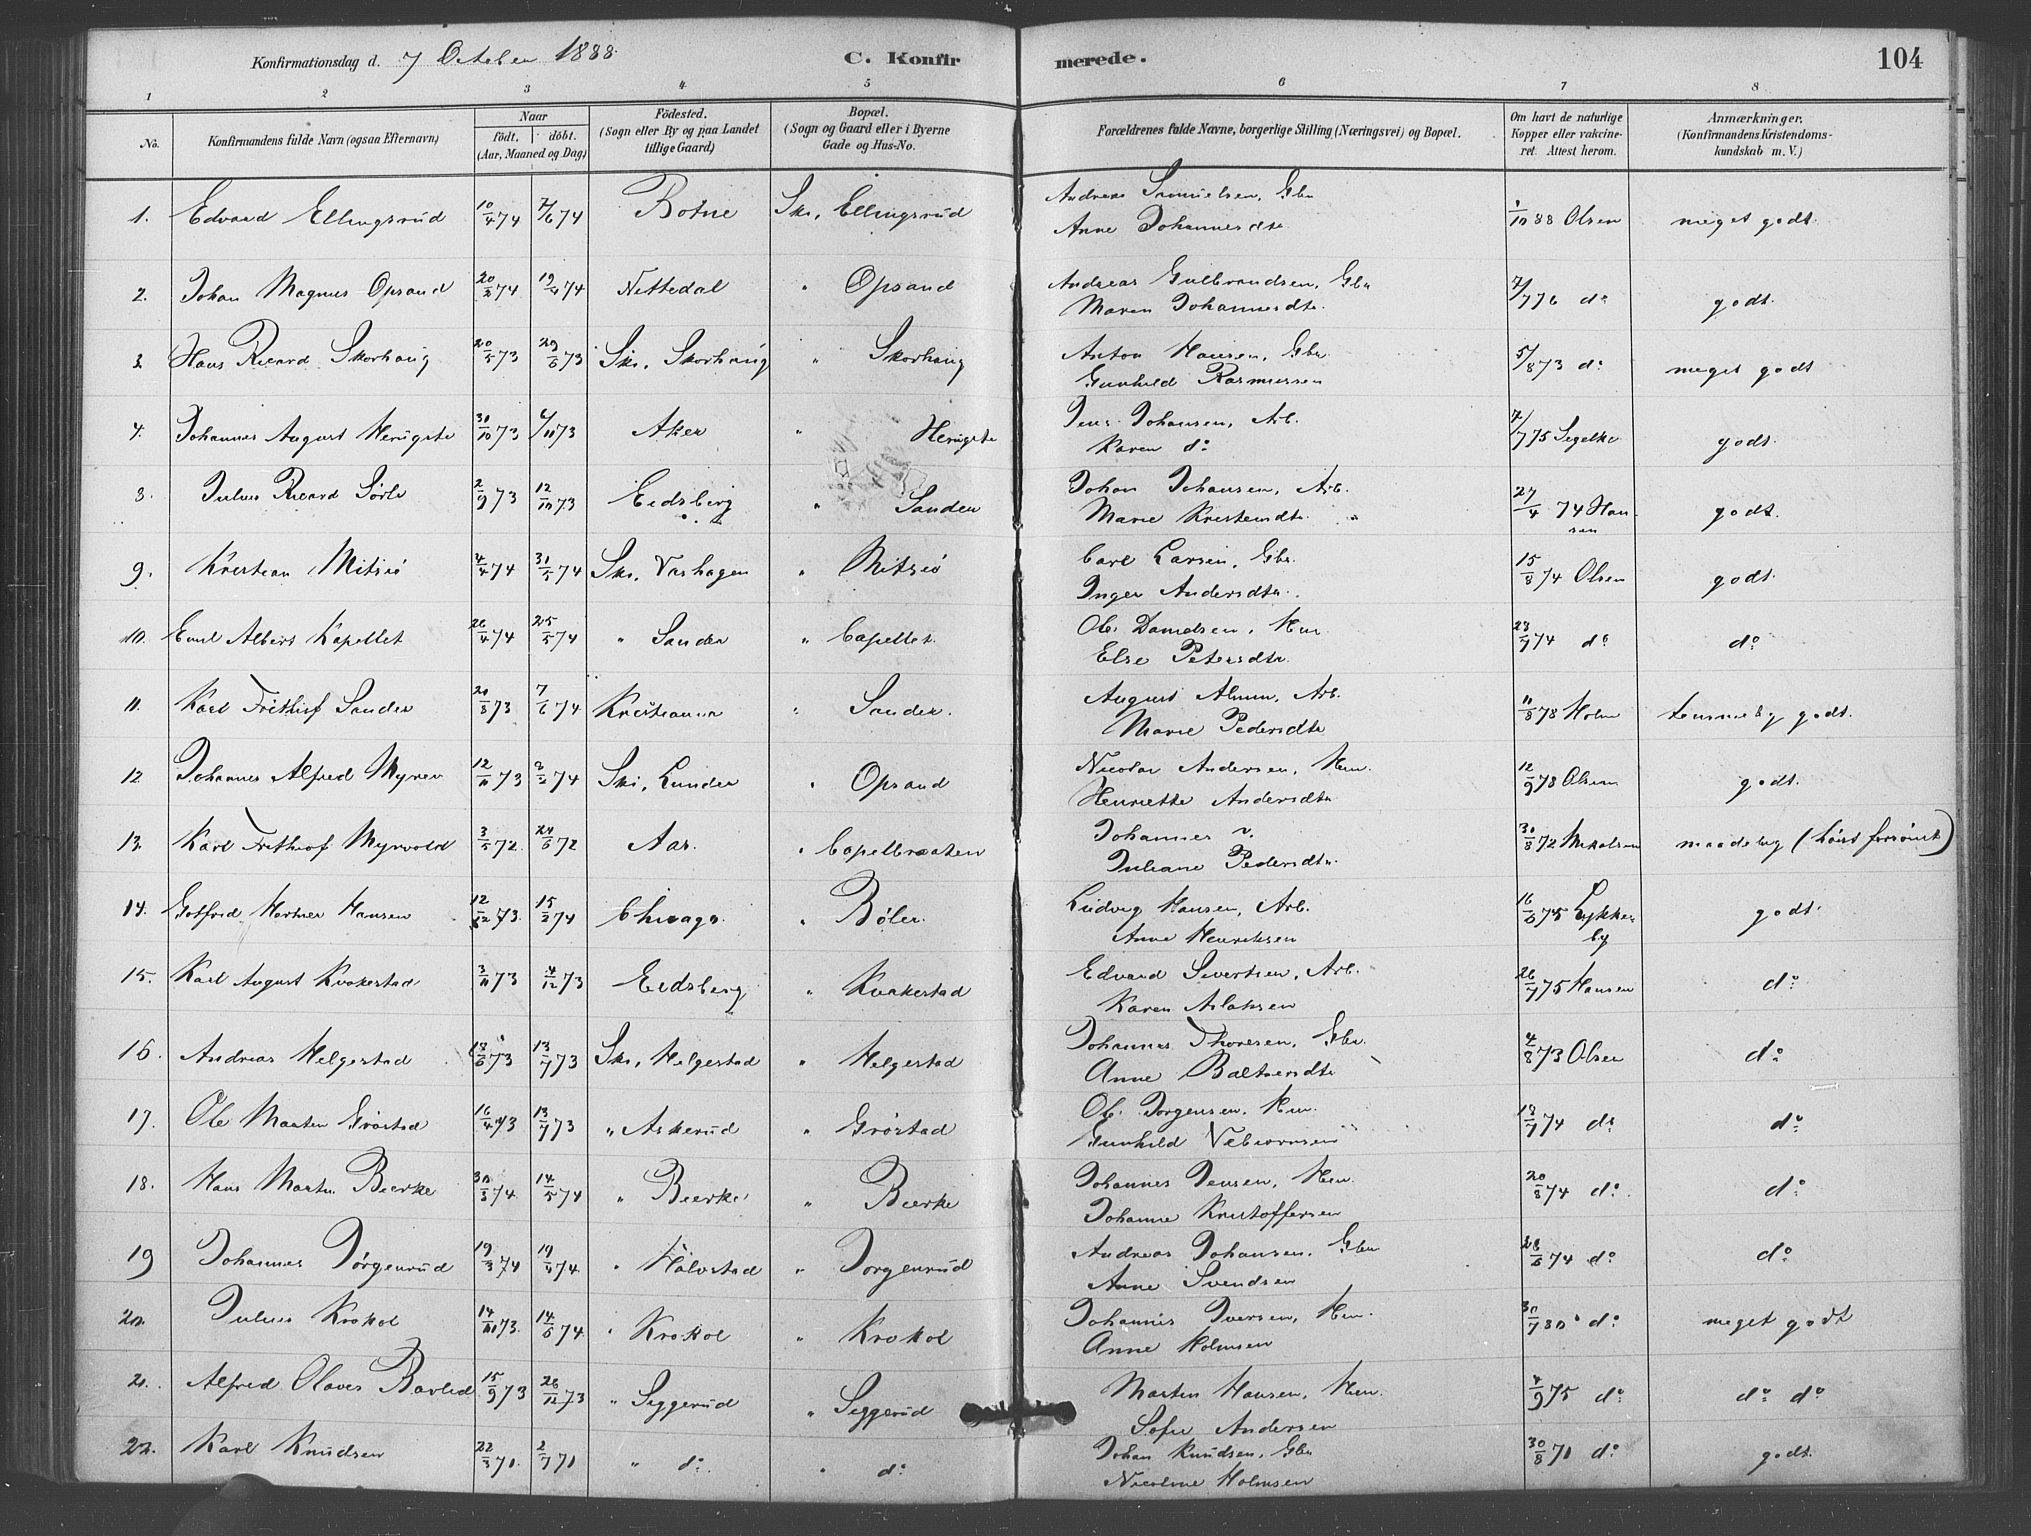 Konfirmationsdag d. 7 October 1888. C. Konfirmerede. 104
1 2 3 4 5 6 7 8
No. Konfirmandens fulde Navn (ogsaa Efternavn) Naar födt. döbt. (Aar, Maaned og Dag) Födested. (Sogn eller By og paa Landet tillige Gaard) Bopæl. (Sogn og Gaard eller i Byerne Gade og Hus-No. Forældrenes fulde Navne, borgerlige Stilling (Næringsvei) og Bopæl. Om havt de naturlige Kopper eller vakcineret. Attest herom. Anmærkninger. (Konfirmandens Kristendomskundskab m. V.)
1. Edvard Ellingsrud 10/4 74 7/6 74 Botne Ski, Ellingsrud Andreas Samuelsen, Gbr 1/10 88 Olsen meget godt.
Anne Johannesdtr
2. Johan Magnus Opsand 20/2 74 19/4 74 Nittedal " Opsand Andreas Gulbrandsen, Gbr 7/7 76 do godt.
Maren Johannesdtr.
3 Hans Ricard Skorhaug 20/5 73 29/6 73 Ski, Skorhaug " Skorhaug Anton Hansen, Gbr 5/8 73 do meget godt
Gunhild Rasmussen
4. Johannes August 31/10 73 Aker " Jens Johansen, Arb. 7/7 75 Segelke godt.
Karen do
8. Julius Ricard Sörli 2/9 73 12/10 73 Eidsberg " Sander Johan Johansen, Arb. 27/4 74 Hansen godt.
Marie Kristendtr. "
9. Kristian Mitsiö 4/4 74 31/5 74 Ski, Vashagen " Mitsiö Carl Larsen, Gbr. 15/8 74 Olsen godt.
Inger Andersdtr.
10. Emil Albert Kapellet 26/4 74 25/5 74 " Sander " Capellet. Ole Danielsen, Hm 23/7 74 do do
Else Petersdtr.
11. Karl Frithiof Sander 20/8 73 7/6 74 Kristiania " Sander. August Alm, Arb. 11/8 78 Holm temmelig godt.
Marie Pedersdtr
12 Johannes Alfred Myrer 12/11 73 2/2 74 Ski, Lunder " Opsand Nicolai Andersen, Hm. 12/9 78 Olsen godt.
Henriette Andersdtr
13. Karl Frithiof Myrvold 3/5 72. 24/6 72 Aas. " Capelbraaten Johannes 30/8 72 Nikolsen maadelig (höist forsömt)
Juliane Pedersdtr.
14. Gotfred Hartner Hansen 12/12 73. 15/2 74 Chicago. " Böler. Ludvig Hansen, Arb. 16/6 75 Lykkeby godt.
Anne Henriksen
15. Karl August Kvakestad 3/11 73 4/12 73 Eidsberg " Kvakestad Edvard Sivertsen, Arb. 26/7 75 Hansen do
Karen Aslaksen
16. Andreas Helgestad 18/6 73 13/7 73 Ski, Helgestad " Helgestad Johannes Thoresen, Gbr. 4/8 73 Olsen do
Anne Baltserdtr
17. Ole Martin Gröstad 16/4 73 13/7 73 " Askerud " Gröstad Ole Jorgensen, Hm. 18/7 74 do do
Gunhild Vebiörnsen
18. Hans Martin Bierke 30/3 74. 14/5 74 " Bierke " Bierke Johannes Jensen, Hm. 20/8 74 do. do
Johanne Kristoffersen
19 Johannes Jörgenrud 19/3 74 19/4 74 " Halvstad " Jorgenrud Andreas Johansen, Gbr 28/6 74 do do
Anne Svendsen
20. Julius Krokol 14/11 73. 14/6 74 " Krokol " Krokol Johannes Iversen, Hm. 30/7 80 do. meget godt
Anne Holmsen
21. Alfred Olaves 15/9 73 26/12 73 " Siggerud " Siggerud Martin Hansen, Hm. 4/9 75 do do do
Sofie Andersen
22. Karl Knudsen 22/3 71. 2/7 71 " do. " do Johan Knudsen, Gbr 30/8 71 do godt.
Nicoline Holmsen